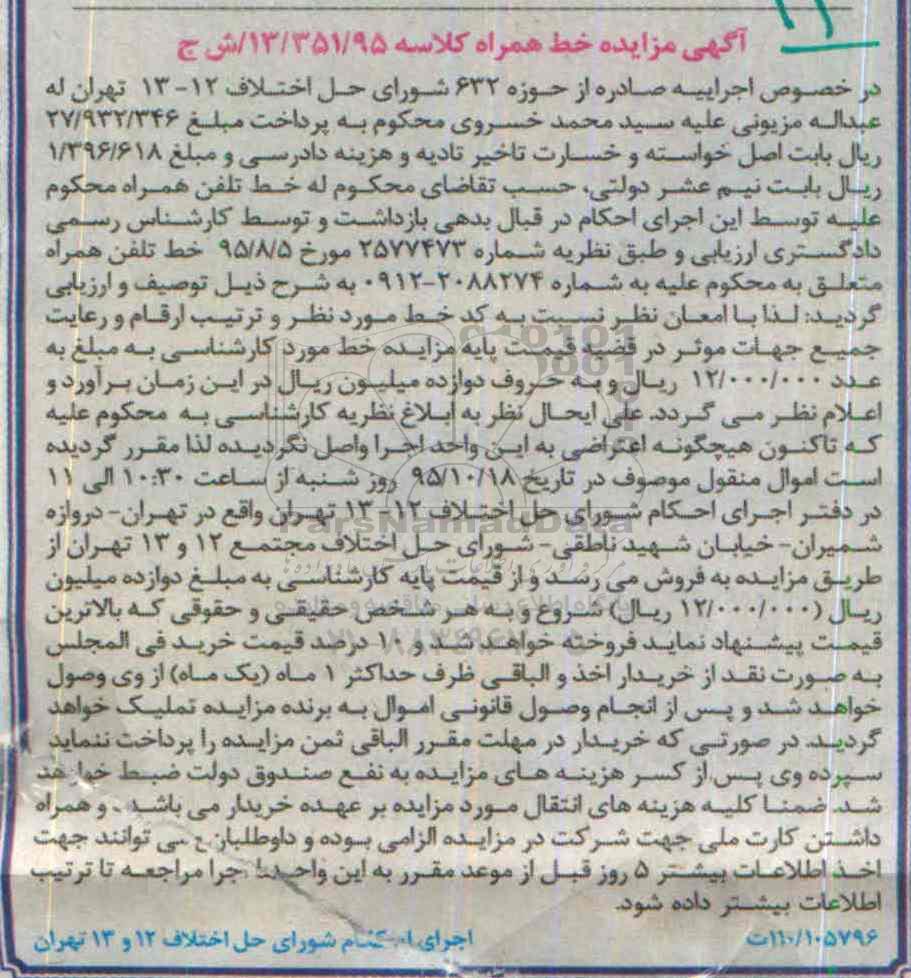 آگهی مزایده خط همراه کلاسه ۱۳/۳۵۱/۹۵/ش ح
در خصوص اجراییه صادره از حوزه ۶۳۲ شورای حل اختلاف ۱۲- ۱۳ تهران له
عبداله مزیونی علیه سید محمد خسروی محکوم به پرداخت مبلغ ۲۷/۹۳۲/۳۴۶
ریال بابت اصل خواسته و خسارت تاخیر تادیه و هزینه دادرسی و مبلغ ۱/۳۹۶/۶۱۸
ریال بابت نیم عشر دولتی، حسب تقاضای محکوم له خط تلفن همراه محکوم
علیه توسط این اجرای احکام در قبال بدهی بازداشت و توسط کارشناس رسمی
دادگستری ارزیابی و طبق نظریه شماره ۲۵۷۷۴۷۳ مورخ ۹۵/۸/۵ خط تلفن همراه
متعلق به محکوم علیه به شماره ۲۰۸۸۲۷۴-۰۹۱۲ به شرح ذیل توصیف و ارزیابی
گردید: لذا با امعان نظر نسبت به کد خط مورد نظر و ترتیب ارقام و رعایت
جمیع جهات موثر در قضیه قیمت پایه مزایده خط مورد کارشناسی به مبلغ به
عدد ۱۲/۰۰۰/۰۰۰ ریال و به حروف دوازده میلیون ریال در این زمان برآورد و
اعلام نظر می گردد. علی ایحال نظر به ابلاغ نظریه کارشناسی به محکوم علیه
که تاکنون هیچگونه اعتراضی به این واحد اجرا واصل نگردیده لذا مقرر گردیده
است اموال منقول موصوف در تاریخ ۹۵/۱۰/۱۸ روز شنبه از ساعت ۱۰:۳۰ الی ۱۱
در دفتر اجرای احکام شورای حل اختلاف ۱۲- ۱۳ تهران واقع در تهران- دروازه
شمیران- خیابان شهید ناطقی- شورای حل اختلاف مجتمع ۱۲ و ۱۳ تهران از
طریق مزایده به فروش می رسد و از قیمت پایه کارشناسی به مبلغ دوازده میلیون
ریال (۱۲/۰۰۰/۰۰۰ ریال) شروع و به هر شخص حقیقی و حقوقی که بالاترین
قیمت پیشنهاد نماید فروخته خواهد شد و ۱۰ درصد قیمت خرید فی المجلس
به صورت نقد از خریدار اخذ و الباقی ظرف حداکثر ۱ ماه (یک ماه) از وی وصول
خواهد شد و پس از انجام وصول قانونی اموال به برنده مزایده تملیک خواهد
گردید. در صورتی که خریدار در مهلت مقرر الباقی ثمن مزایده را پرداخت ننماید
سپرده وی پس از کسر هزینه های مزایده به نفع صندوق دولت ضبط خواهد
شد. ضمنا کلیه هزینه های انتقال مورد مزایده بر عهده خریدار می باشد. و همراه
داشتن کارت ملی جهت شرکت در مزایده الزامی بوده و داوطلبان می توانند جهت
اخذ اطلاعات بیشتر ۵ روز قبل از موعد مقرر به این واحد اجرا مراجعه تا ترتیب
اطلاعات بیشتر داده شود.
۱۱۰/۱۰۵۷۹۶ت اجرای احکام شورای حل اختلاف ۱۲ و ۱۳ تهران
ParsNamadData